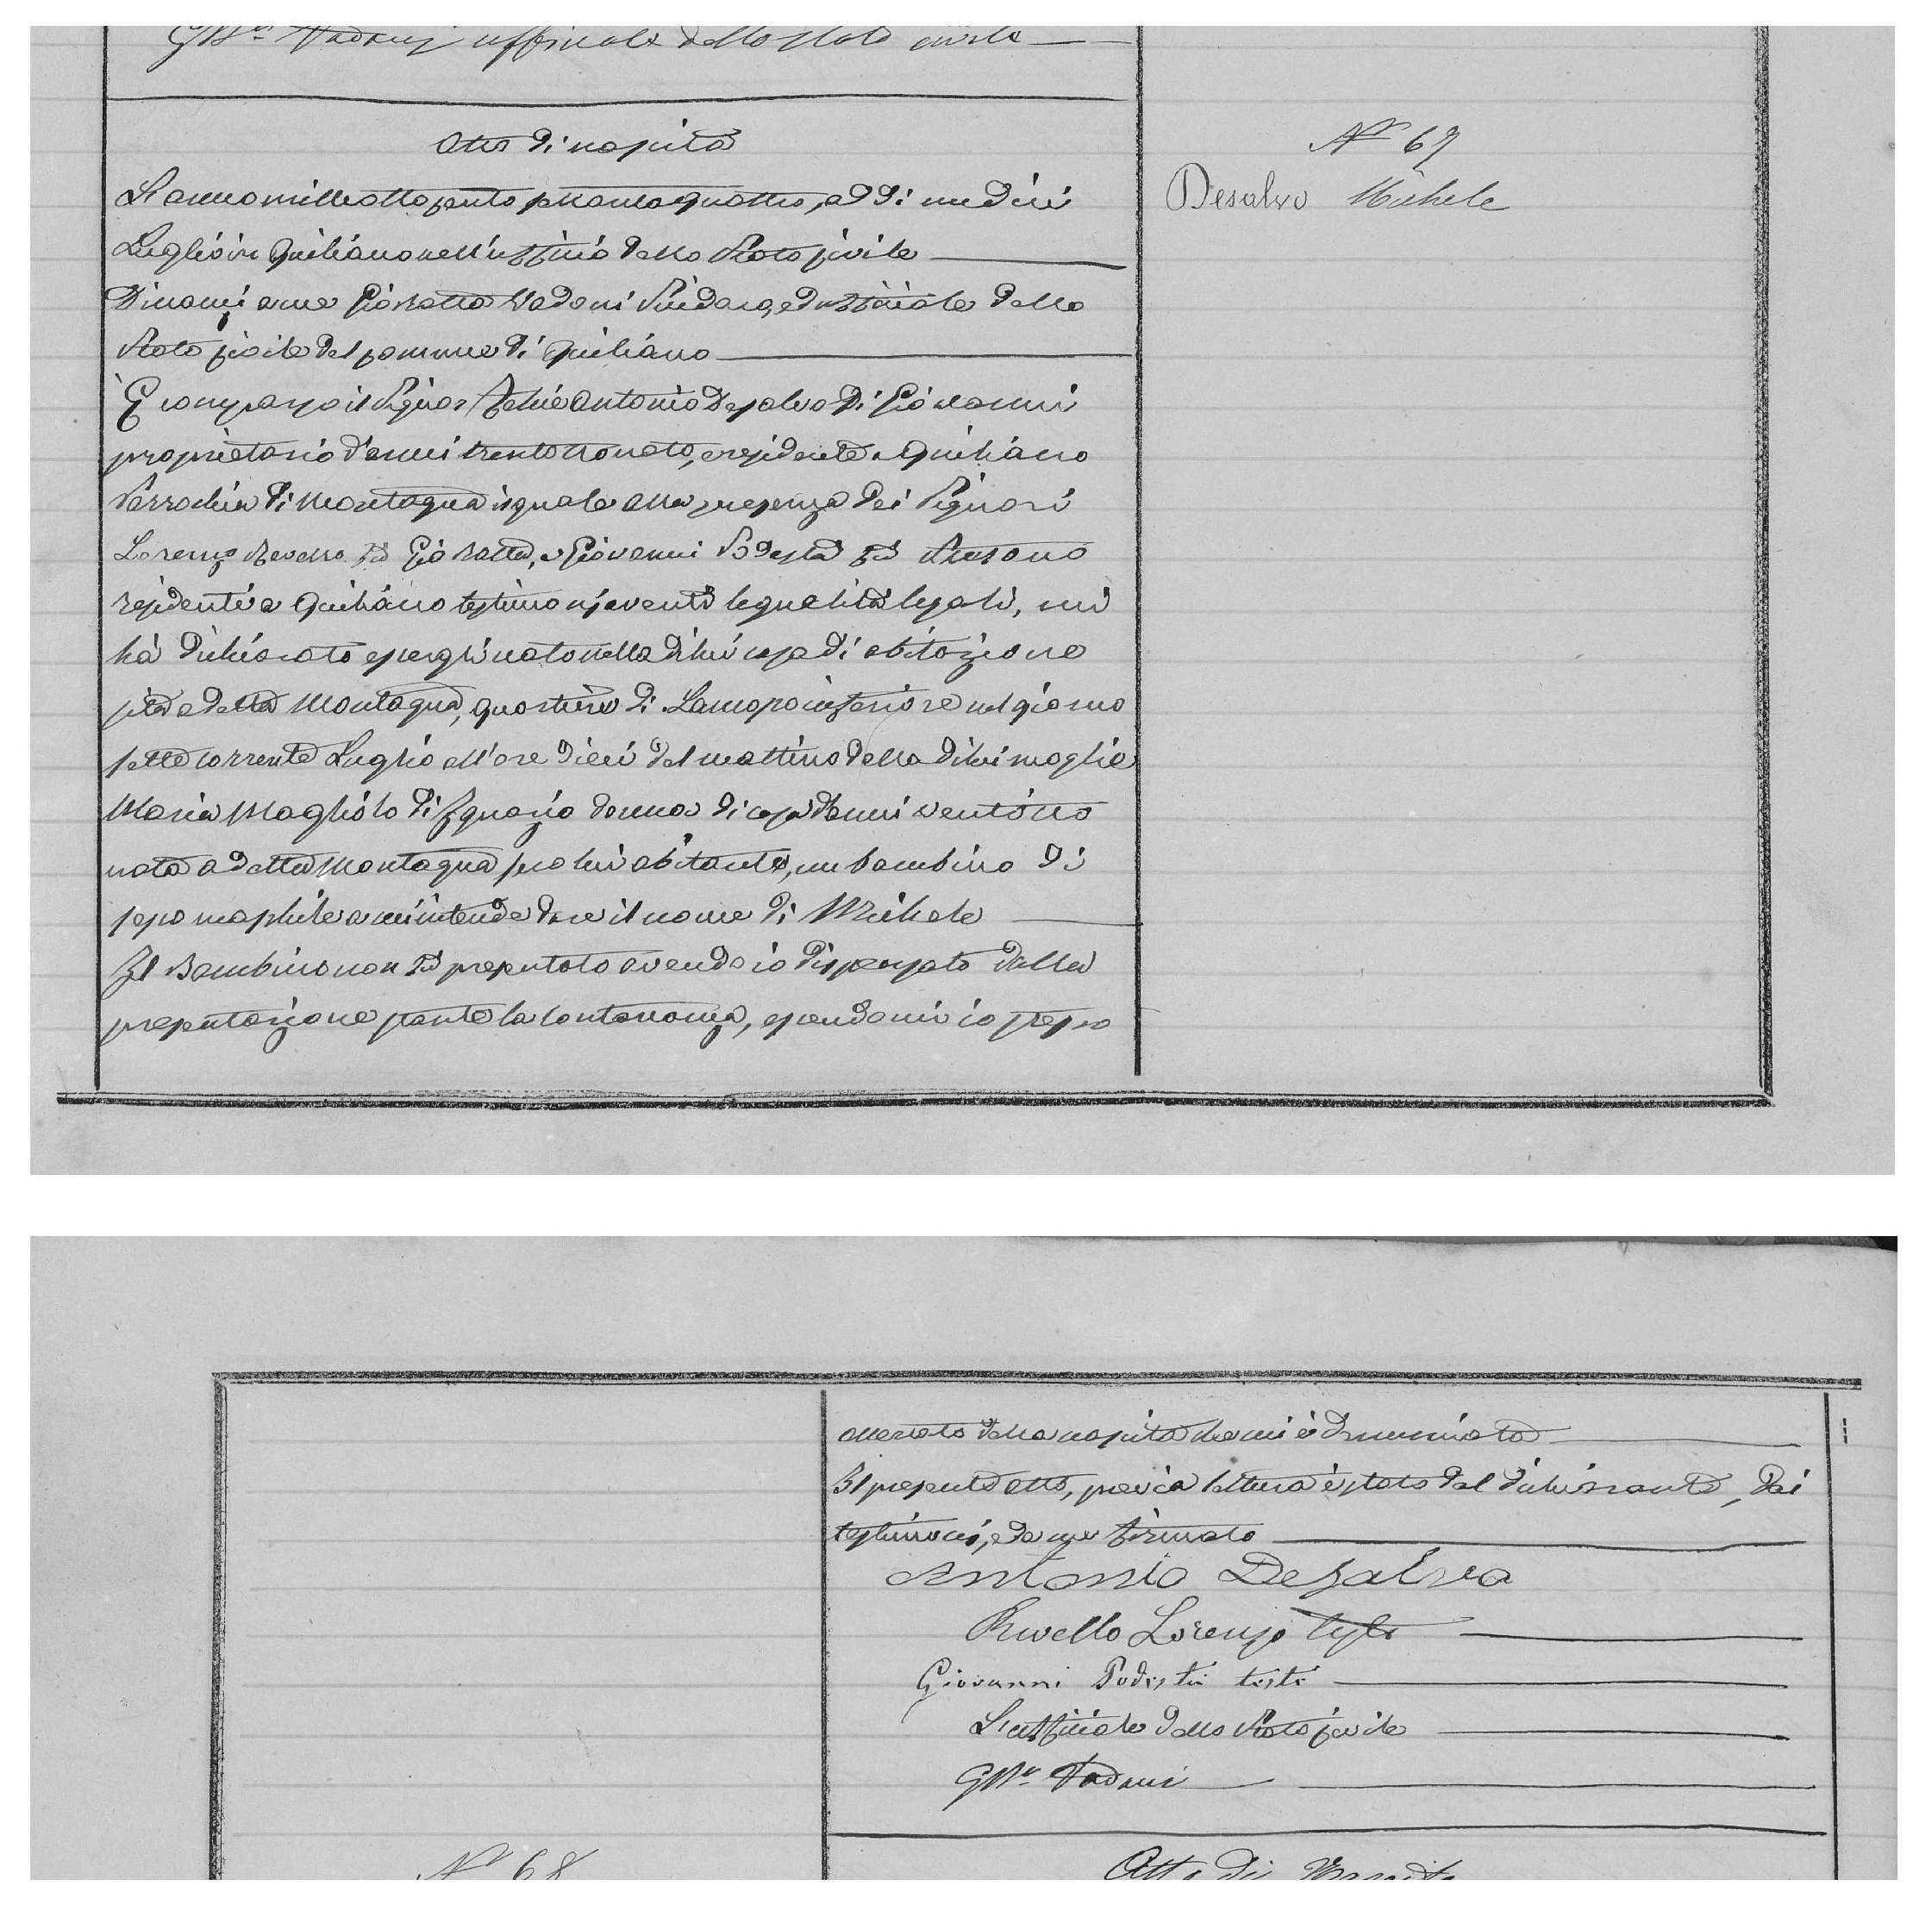 GBa. Vadoni ufficiale dello stato civile
Atto di nascita
N° 67
Desalvo Michele
L'anno milleottocento settantaquattro, addì undici
Luglio in Quiliano nell'ufficio dello Stato civile
Dinanzi a me Gio Batta Vadoni Sindaco, ed uffiziale dello
Stato civile del comune di Quiliano
È comparso il Signor Antonio Desalvo di Giovanni
proprietario d'anni trentotto nato, e residente a Quiliano
Parrochia di Montagna il quale alla presenza dei Signori
Lorenzo Revello fù Gio Batta, e Giovanni Podestà fù
residenti a Quiliano testimonj aventi le qualità legali, mi
hà dichiarato essergli nato nella di lui casa di abitazione
sita a detta Montagna, quartiere di inferiore nel giorno
sette corrente Luglio all'ore dieci del mattino dalla di lui moglie
Maria Magliolo di Ignazio donna di casa d'anni ventotto
nata a detta Montagna seco lui abitante, un bambino di
sesso maschile a cui intende dare il nome di Michele
Il Bambino non fù presentato avendo io dispensato dalla
presentazione stante la lontananza, essendomi io stesso
accertato della nascita che mi è denunciata
Il presente atto, previa lettura è stato dal dichiarante, dai
testimoni, e da me firmato
Antonio Desalvo
Revello Lorenzo teste
Giovanni Podestà teste
L'uffiziale dello Stato civile
GBa. Vadoni
N° 68
Atto di Nascita